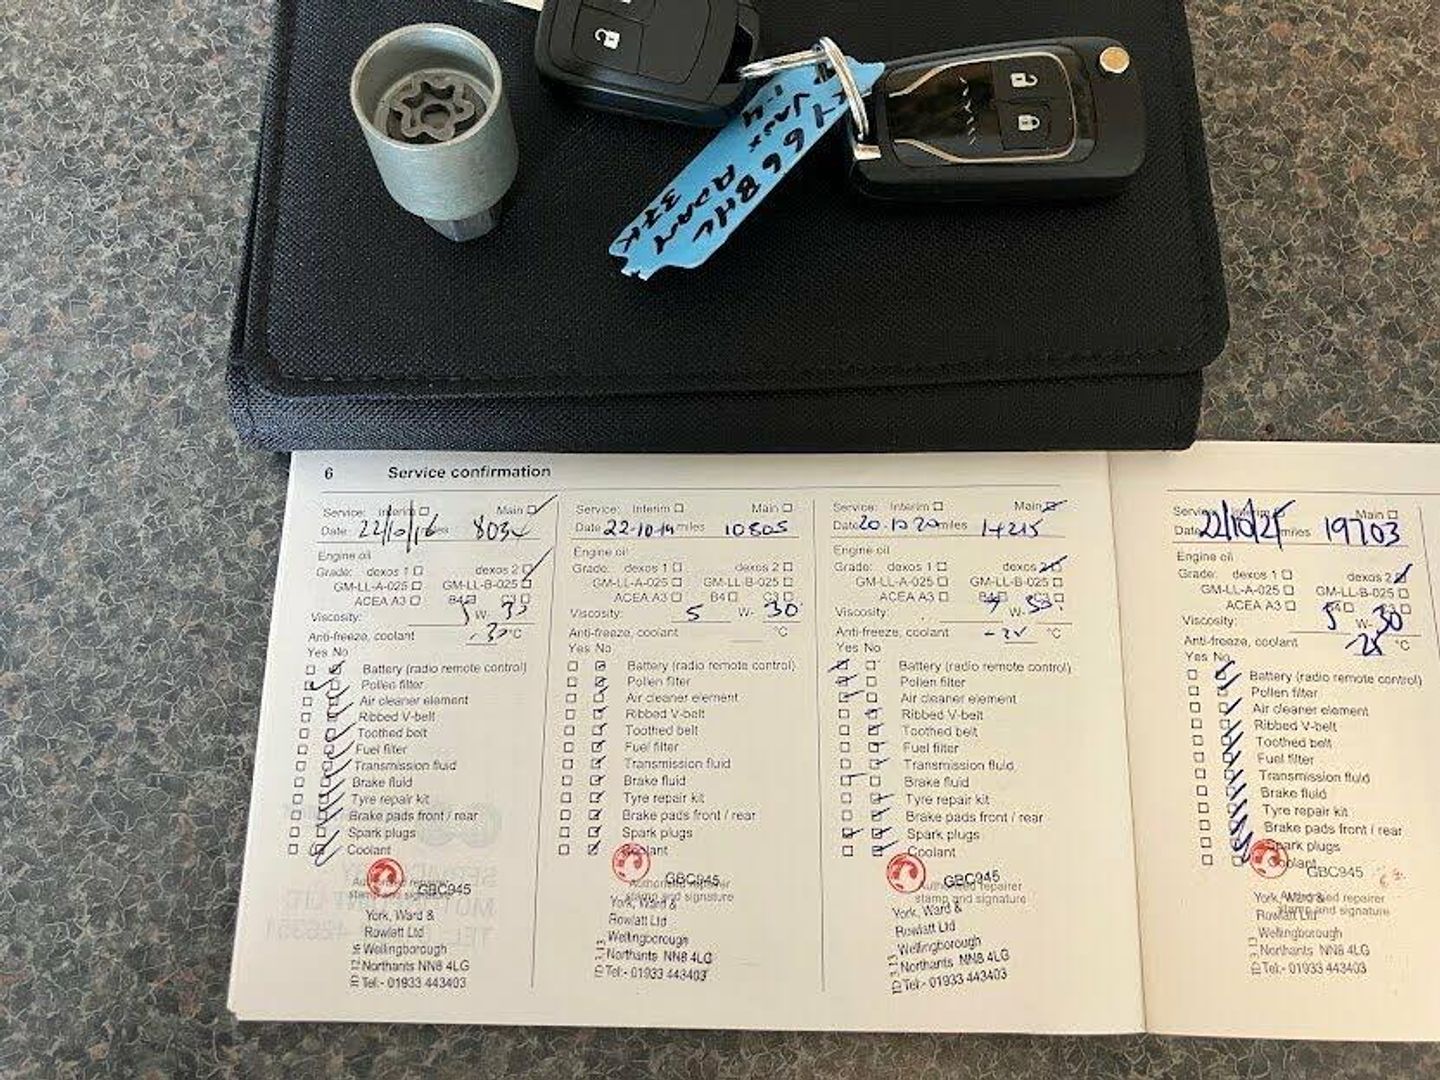 VAUX ADAM
1.4
37K
6 Service confirmation
Service: Interim Main
Date 22/10/16 miles 8034
Engine oil
Grade: dexos 1 dexos 2
GM-LL-A-025 GM-LL-B-025
ACEA A3 B4 C3
Viscosity: 5 W- 30
Anti-freeze, coolant -30 °C
Yes No
Battery (radio remote control)
Pollen filter
Air cleaner element
Ribbed V-belt
Toothed belt
Fuel filter
Transmission fluid
Brake fluid
Tyre repair kit
Brake pads front / rear
Spark plugs
Coolant
GBC945
Authorised repairer
stamp and signature
York, Ward &
Rowlatt Ltd
Wellingborough
Northants NN8 4LG
Tel:- 01933 443403
Service: Interim Main
Date 22-10-19 miles 10805
Engine oil
Grade: dexos 1 dexos 2
GM-LL-A-025 GM-LL-B-025
ACEA A3 B4 C3
Viscosity: 5 W- 30
Anti-freeze, coolant °C
Yes No
Battery (radio remote control)
Pollen filter
Air cleaner element
Ribbed V-belt
Toothed belt
Fuel filter
Transmission fluid
Brake fluid
Tyre repair kit
Brake pads front / rear
Spark plugs
Coolant
GBC945
Authorised repairer
stamp and signature
York, Ward &
Rowlatt Ltd
Wellingborough
Northants NN8 4LG
Tel:- 01933 443403
Service: Interim Main
Date 20.10 20 miles 14215
Engine oil
Grade: dexos 1 dexos 2
GM-LL-A-025 GM-LL-B-025
ACEA A3 B4 C3
Viscosity: 5 W- 30
Anti-freeze, coolant °C
Yes No
Battery (radio remote control)
Pollen filter
Air cleaner element
Ribbed V-belt
Toothed belt
Fuel filter
Transmission fluid
Brake fluid
Tyre repair kit
Brake pads front / rear
Spark plugs
Coolant
GBC945
Authorised repairer
stamp and signature
York, Ward &
Rowlatt Ltd
Wellingborough
Northants NN8 4LG
Tel:- 01933 443403
Service: Interim Main
Date 22/10/21 miles 19703
Engine oil
Grade: dexos 1 dexos 2
GM-LL-A-025 GM-LL-B-025
ACEA A3 B4 C3
Viscosity: 5 W- 30
Anti-freeze, coolant °C
Yes No
Battery (radio remote control)
Pollen filter
Air cleaner element
Ribbed V-belt
Toothed belt
Fuel filter
Transmission fluid
Brake fluid
Tyre repair kit
Brake pads front / rear
Spark plugs
Coolant
GBC945
Authorised repairer
stamp and signature
York, Ward &
Rowlatt Ltd
Wellingborough
Northants NN8 4LG
Tel:- 01933 443403